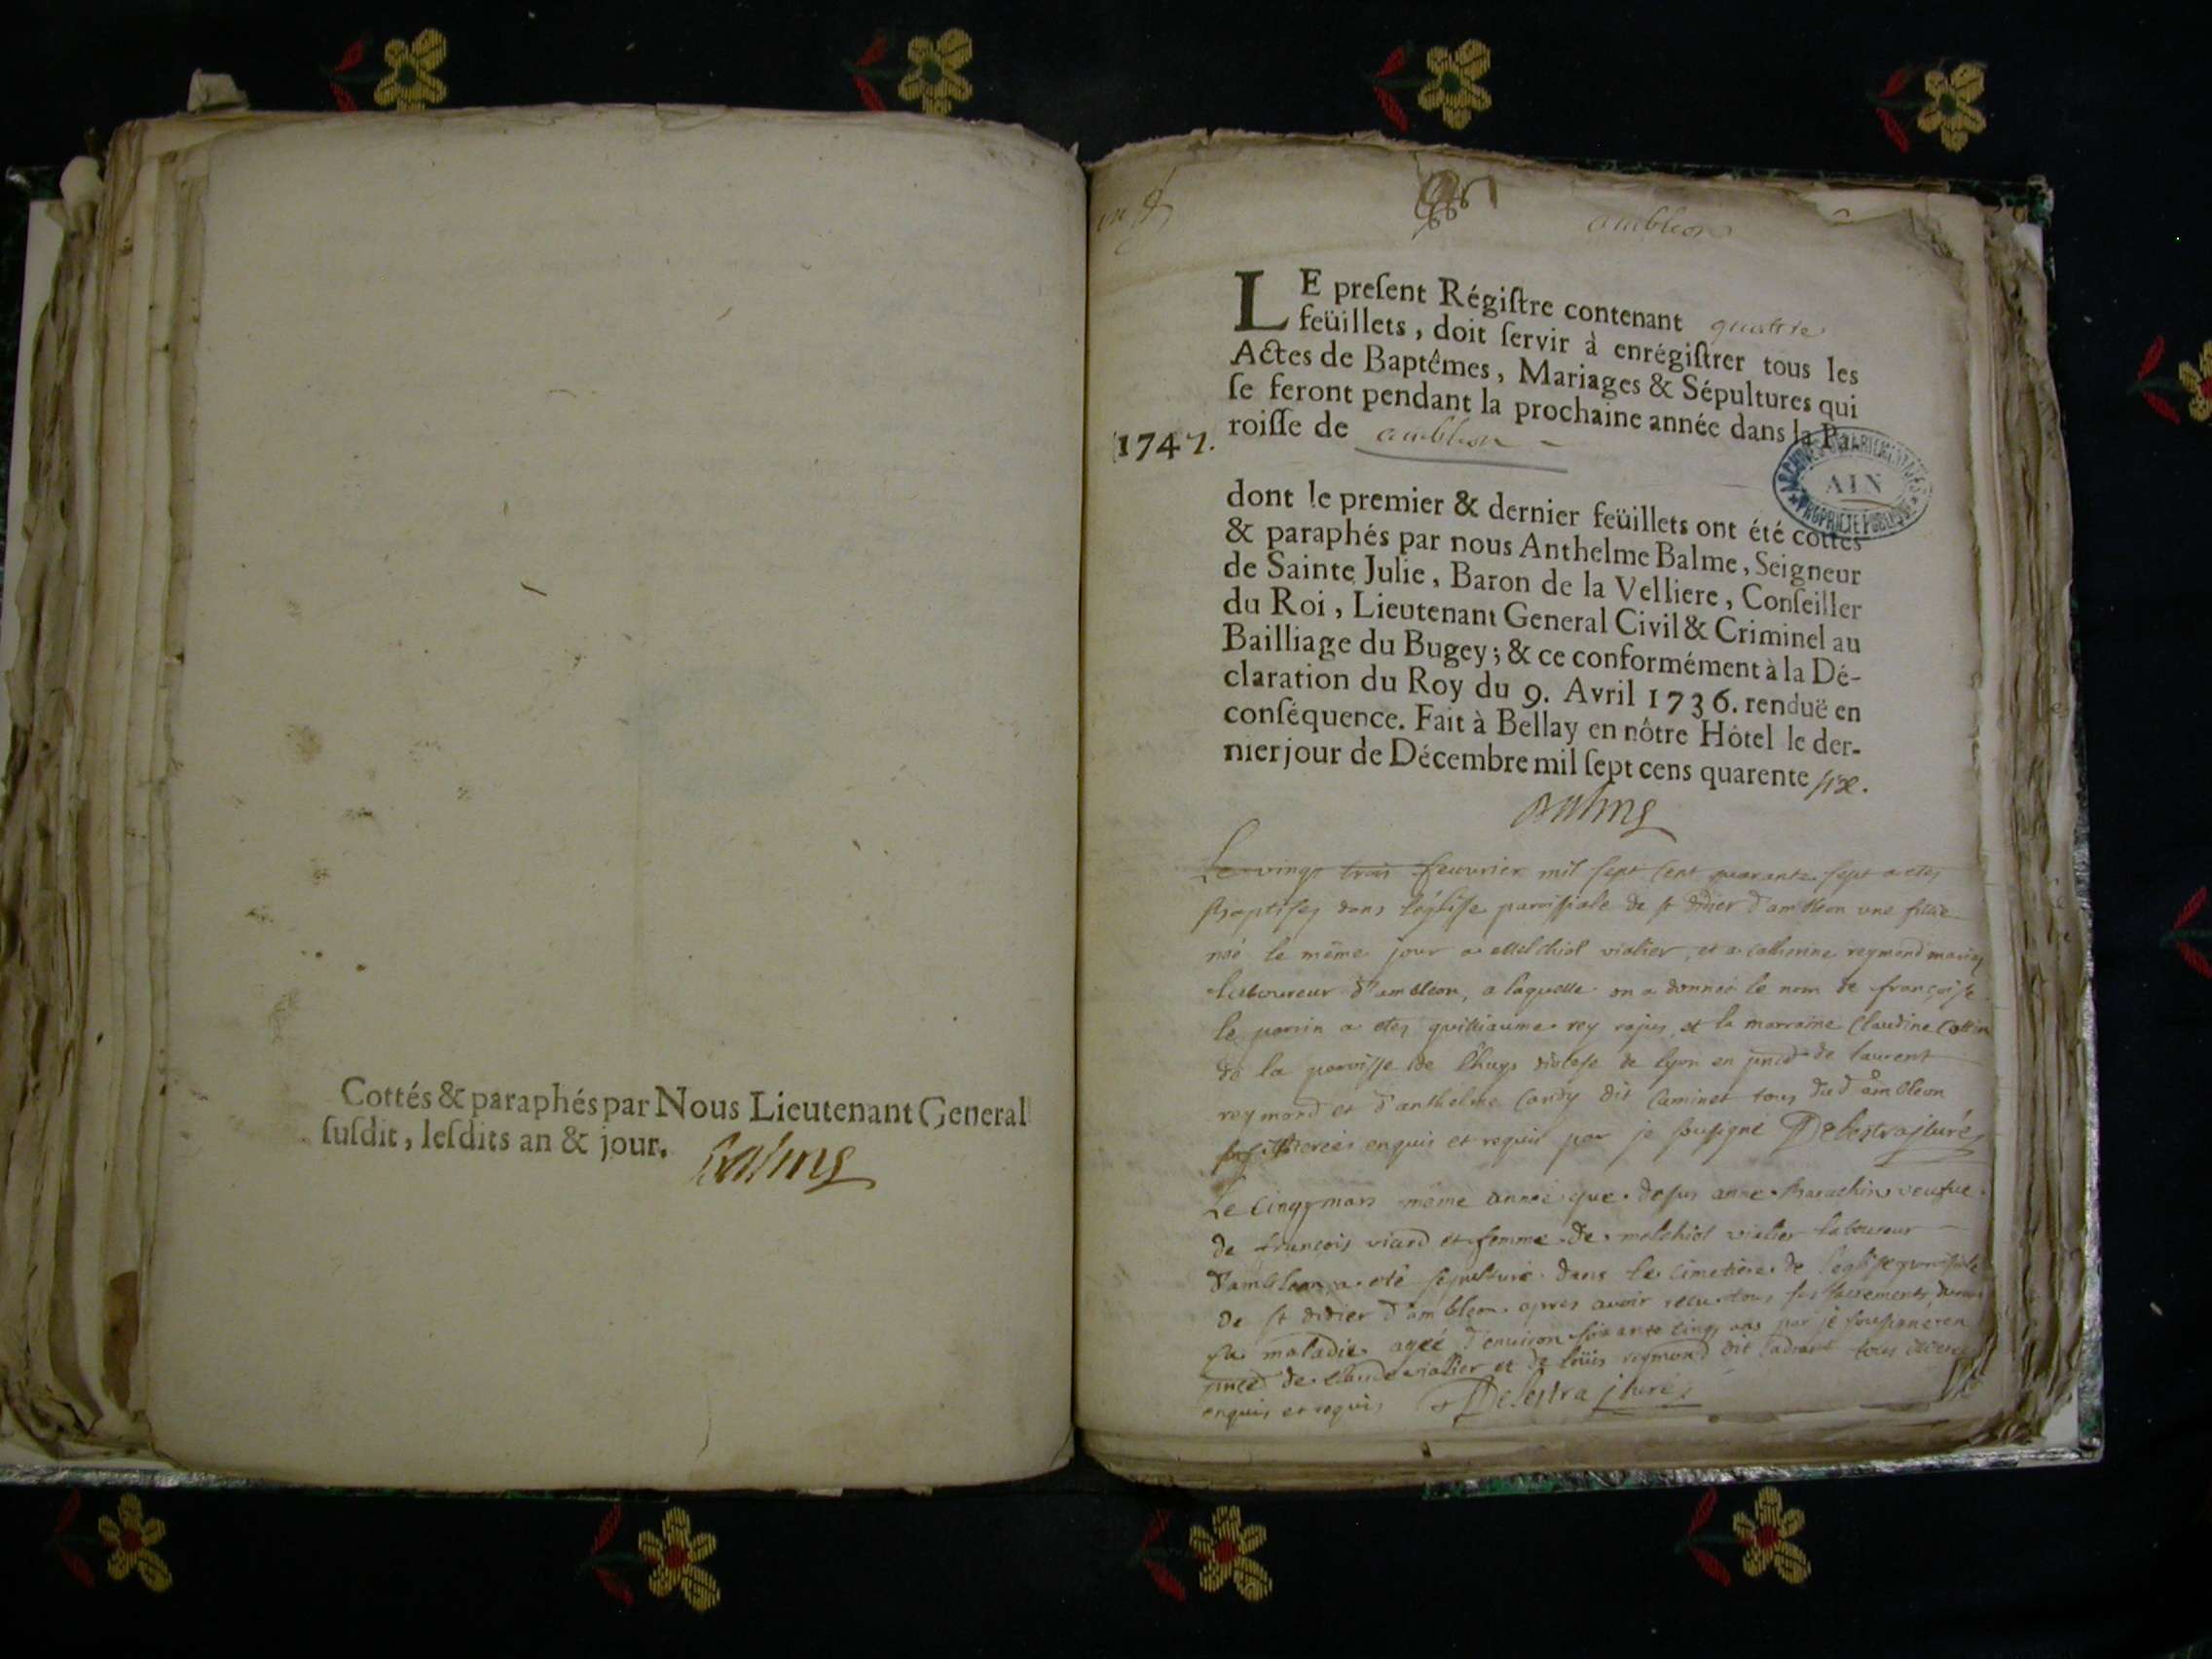 Cottés & paraphés par Nous Lieutenant General
susdit, lesdits an & jour.
Balme
ambleon
LE present Régistre contenant quattre
feüillets, doit servir à enrégistrer tous les
Actes de Baptêmes, Mariages & Sépultures qui
se feront pendant la prochaine année dans la Pa-
roisse de ambleon
1747.
ARCHIVES DEPARTEMENTALES
AIN
PROPRIETE PUBLIQUE
dont le premier & dernier feüillets ont été cottés
& paraphés par nous Anthelme Balme, Seigneur
de Sainte Julie, Baron de la Velliere, Conseiller
du Roi, Lieutenant General Civil & Criminel au
Bailliage du Bugey; & ce conformément à la Dé-
claration du Roy du 9. Avril 1736. renduë en
conséquence. Fait à Bellay en nôtre Hôtel le der-
nier jour de Décembre mil sept cens quarente six.
Balme
Le vingt trois feuvrier mil sept cent quarante sept a etez
Baptisez dans l'église paroissiale de st didier d'ambleon une fille
née le même jour a melchiol vialier, et a catherine reymond mariez
laboureur d'ambleon, a laquelle on a donnéé le nom de françoise
le parrin a etez guilliaume rey et la marraine Claudine Cottin
de la paroisse de lhuys diocese de lyon en pnce de laurent
reymond et d'anthelme Candy dit Caminet tous dud ambleon
enquis et requis par je sousigné Delestra curé
Le cinq mars même année que desus anne veufve
de francois viard et femme de melchiol vialier laboureur
d'ambleon a eté sepulturé dans le cimetiere de l'eglise paroissiale
de st didier d'ambleon apres avoir recu tous ses sacrements durant
sa maladie ageé d'environ soixante cinq ans par je sousigné en
pnce de claude vialier et de loüis reymond dit tous
enquis et requis Delestra curé